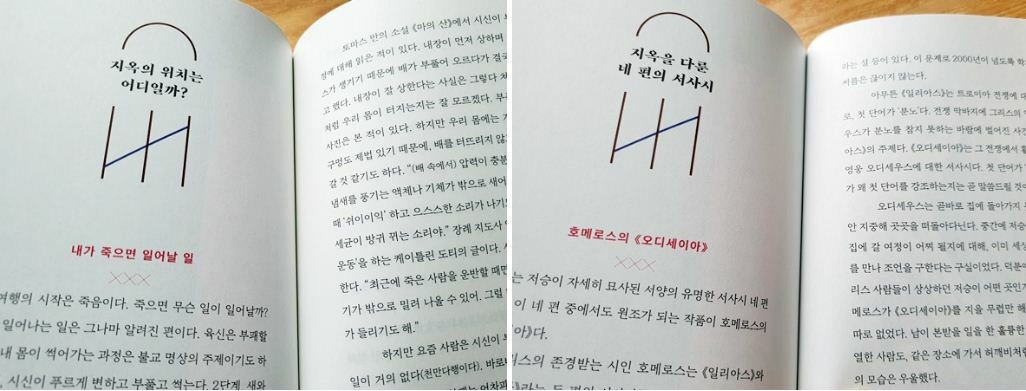 지옥의 위치는
어디일까?
내가 죽으면 일어날 일
여행의 시작은 죽음이다. 죽으면 무슨 일이 일어날까?
일어나는 일은 그나마 알려진 편이다. 육신은 부패할
내 몸이 썩어가는 과정은 불교 명상의 주제이기도 하
시신이 푸르게 변하고 부풀고 썩는다. 2단계, 새와
토마스 만의 소설 《마의 산》에서 시신이 부
정에 대해 읽은 적이 있다. 내장이 먼저 상하며
스가 생기기 때문에 배가 부풀어 오르다가 결국
고 했다. 내장이 잘 상한다는 사실은 그렇다 쳐
처럼 우리 몸이 터지는지는 잘 모르겠다. 부
사진은 본 적이 있다. 하지만 우리 몸에는
구멍도 제법 있기 때문에, 배를 터뜨리지 않
갈 것 같기도 하다. “(배 속에서) 압력이 충분
냄새를 풍기는 액체나 기체가 밖으로 새어
때 ‘쉬이이익’ 하고 으스스한 소리가 나기도
세균이 방귀 뀌는 소리야.” 장례 지도사
운동’을 하는 케이틀린 도티의 글이다.
한다. “최근에 죽은 사람을 운반할 때면
기가 밖으로 밀려 나올 수 있어. 그럴
가 들리기도 해.”
하지만 요즘 사람은 시신이 부
일이 거의 없다(천만다행이다). 바로
지옥을 다룬
네 편의 서사시
호메로스의 《오디세이아》
는 저승이 자세히 묘사된 서양의 유명한 서사시 네 편
이 네 편 중에서도 원조가 되는 작품이 호메로스의
아》다.
리스의 존경받는 시인 호메로스는 《일리아스》와
라는 설 등이 있다. 이 문제로 2000년이 넘도록 학
씨름은 끊이지 않는다.
아무튼 《일리아스》는 트로이아 전쟁에 대
로, 첫 단어가 ‘분노’다. 전쟁 막바지에 그리스의
우스가 분노를 참지 못하는 바람에 벌어진 사건
아스》의 주제다. 《오디세이아》는 그 전쟁에서 활
영웅 오디세우스에 대한 서사시다. 첫 단어가
가 왜 첫 단어를 강조하는지는 곧 말씀드릴 것이
오디세우스는 곧바로 집에 돌아가지
안 지중해 곳곳을 떠돌아다닌다. 중간에 저승
집에 갈 여정이 어찌 될지에 대해, 이미 세상
를 만나 조언을 구한다는 구실이었다. 덕분에
리스 사람들이 상상하던 저승이 어떤 곳인가
메로스가 《오디세이아》를 지을 무렵만 해
따로 없었다. 남이 본받을 일을 한 훌륭한
열한 사람도, 같은 장소에 가서 허깨비처럼
의 모습은 우울했다.